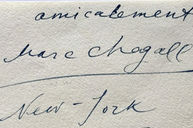 amicalement
Marc Chagall
New-York